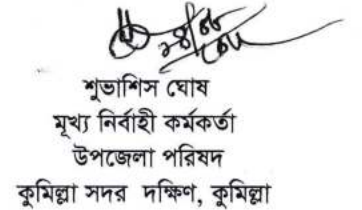 শুভাশিস ঘোষ
মূখ্য নির্বাহী কর্মকর্তা
উপজেলা পরিষদ
কুমিল্লা সদর দক্ষিণ, কুমিল্লা